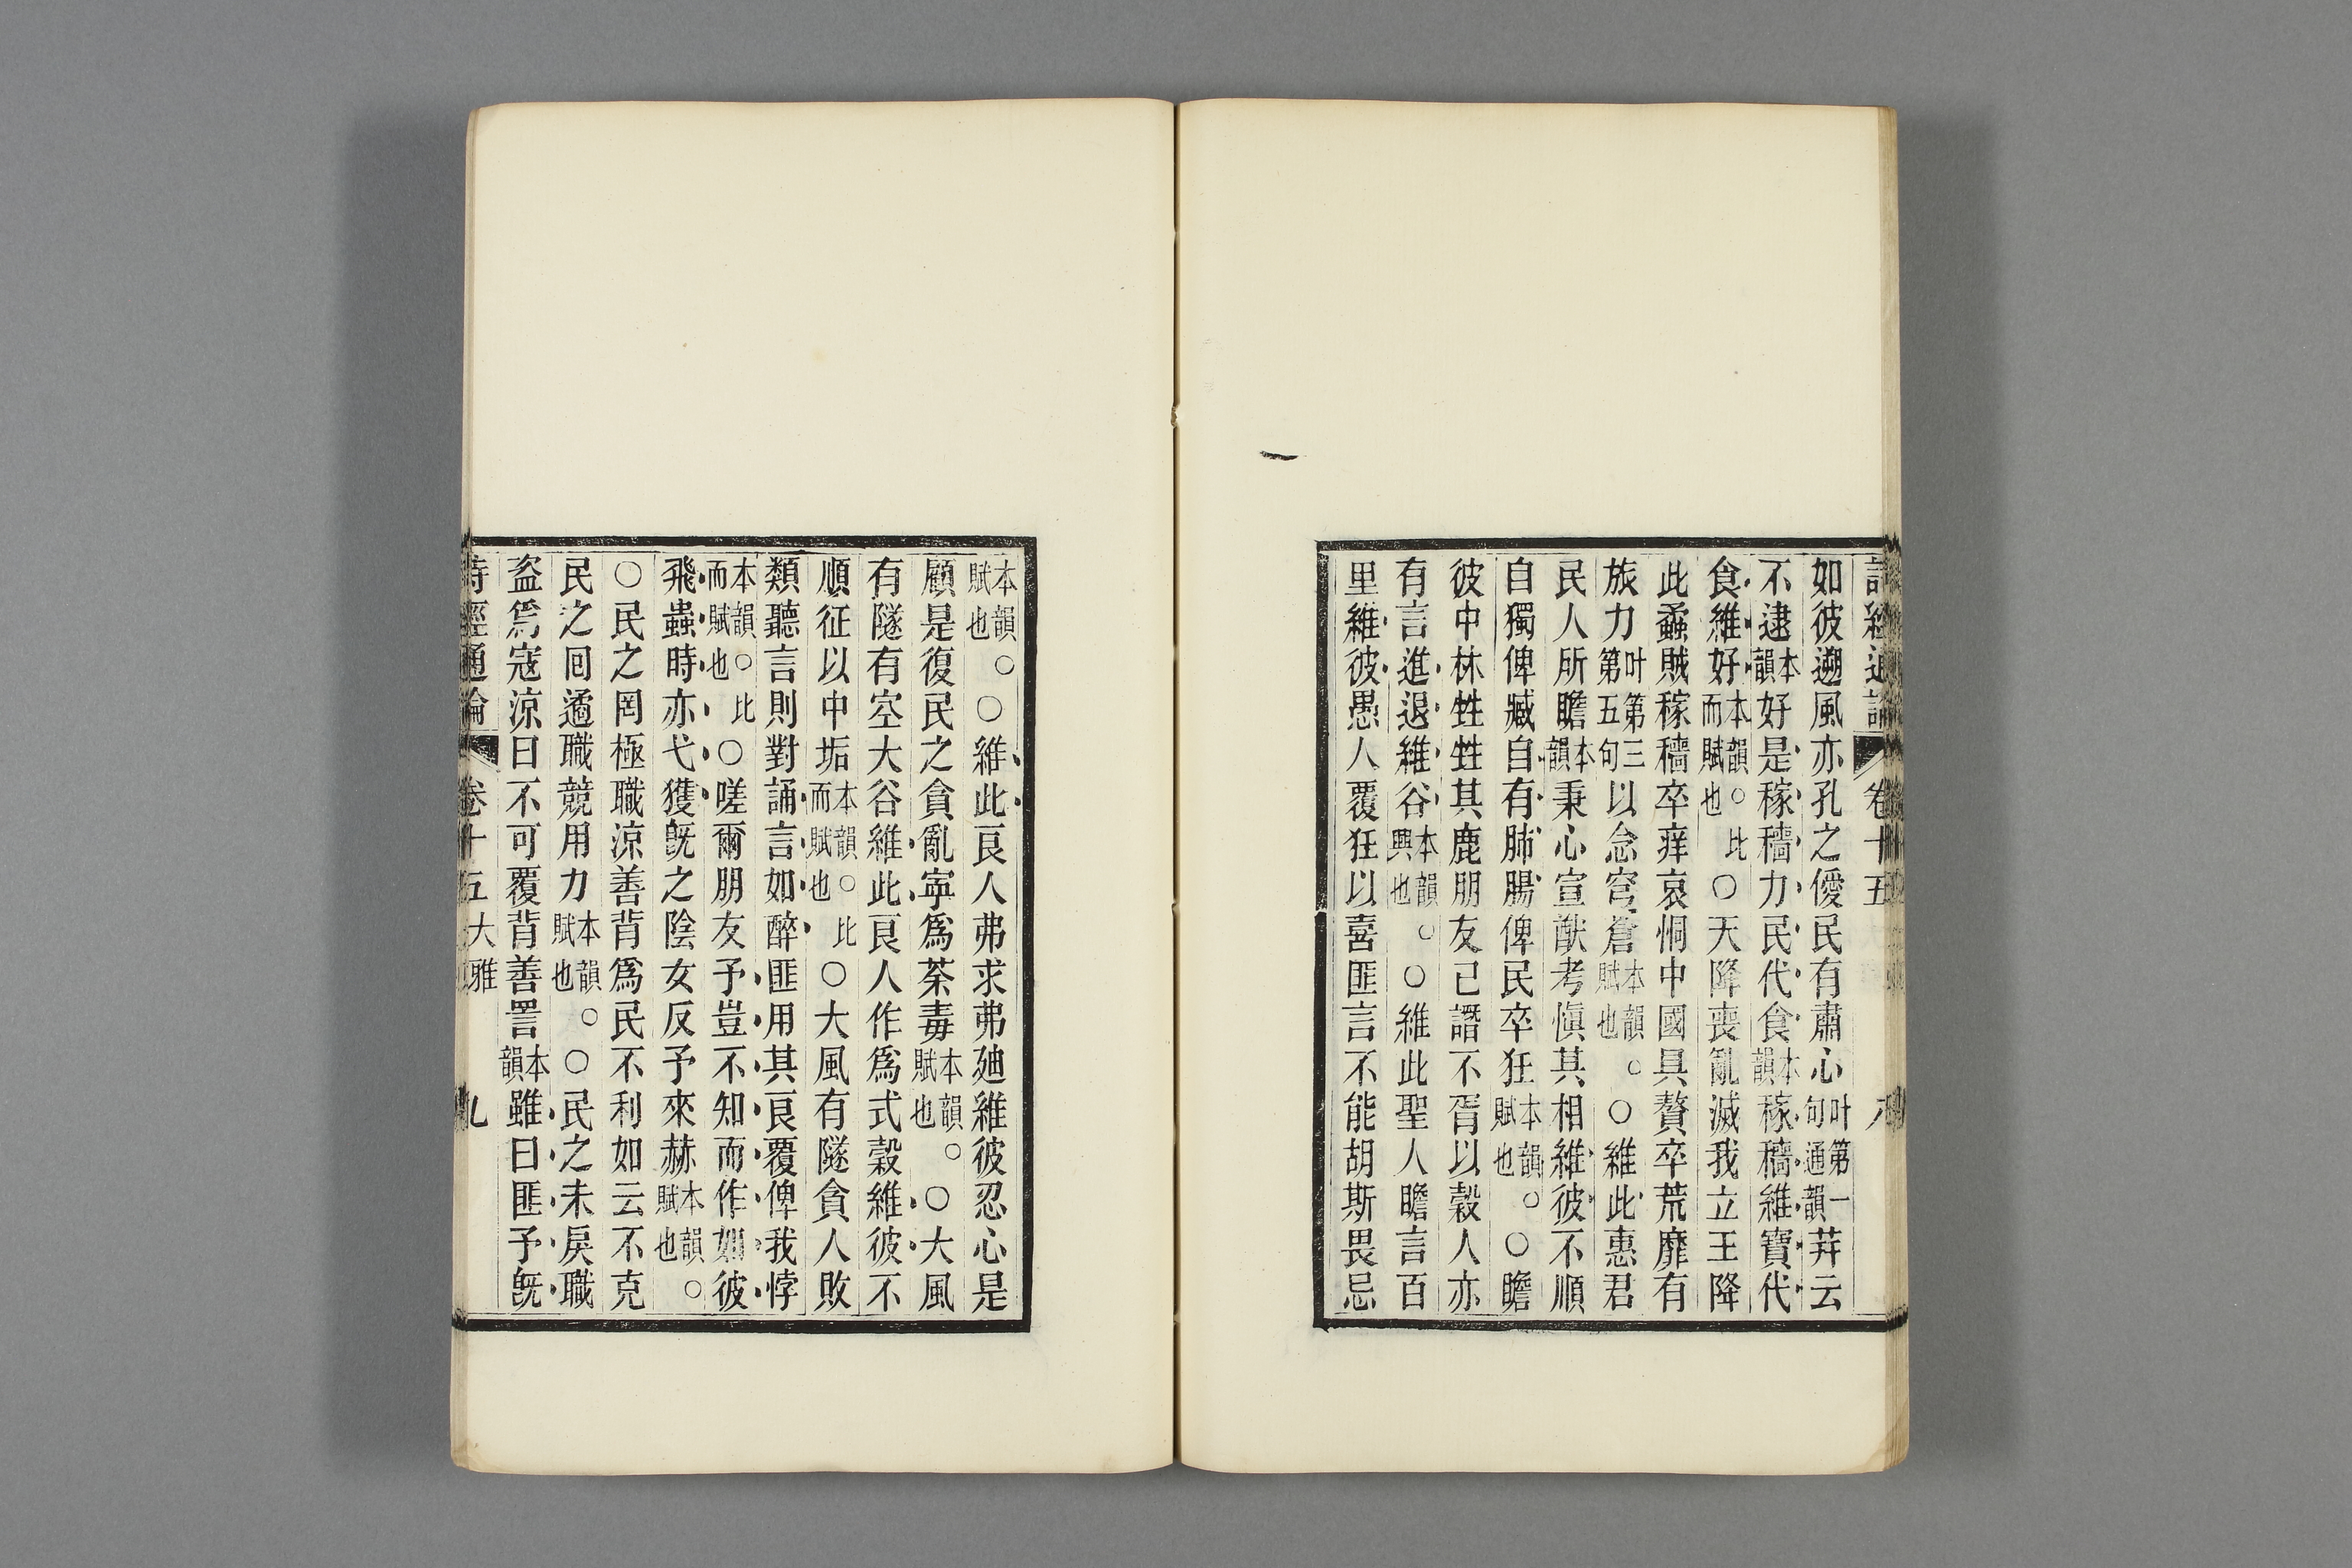 詩經通論 卷十五 八
如彼遡風亦孔之僾民有肅心叶第一句通韻荓云
不逮本韻好是稼穡力民代食本韻稼穡維寶代
食維好本韻○比而賦也○天降喪亂滅我立王降
此蟊賊稼穡卒痒哀恫中國具贅卒荒靡有
旅力叶第三第五句以念穹蒼本韻○賦也○維此惠君
民人所瞻本韻秉心宣猷考慎其相維彼不順
自獨俾臧自有肺腸俾民卒狂本韻○賦也○瞻
彼中林甡甡其鹿朋友已譖不胥以穀人亦
有言進退維谷本韻○興也○維此聖人瞻言百
里維彼愚人覆狂以喜匪言不能胡斯畏忌
本韻○賦也○維此良人弗求弗廸維彼忍心是
顧是復民之貪亂寧爲荼毒本韻○賦也○大風
有隧有空大谷維此良人作爲式穀維彼不
順征以中垢本韻○比而賦也○大風有隧貪人敗
類聽言則對誦言如醉匪用其良覆俾我悖
本韻○比而賦也○嗟爾朋友予豈不知而作如彼
飛蟲時亦弋獲旣之陰女反予來赫本韻○賦也
○民之罔極職涼善背爲民不利如云不克
民之囘遹職競用力本韻○賦也○民之未戾職
盜爲寇涼曰不可覆背善詈本韻雖曰匪予旣
詩經通論 卷十五大雅 九